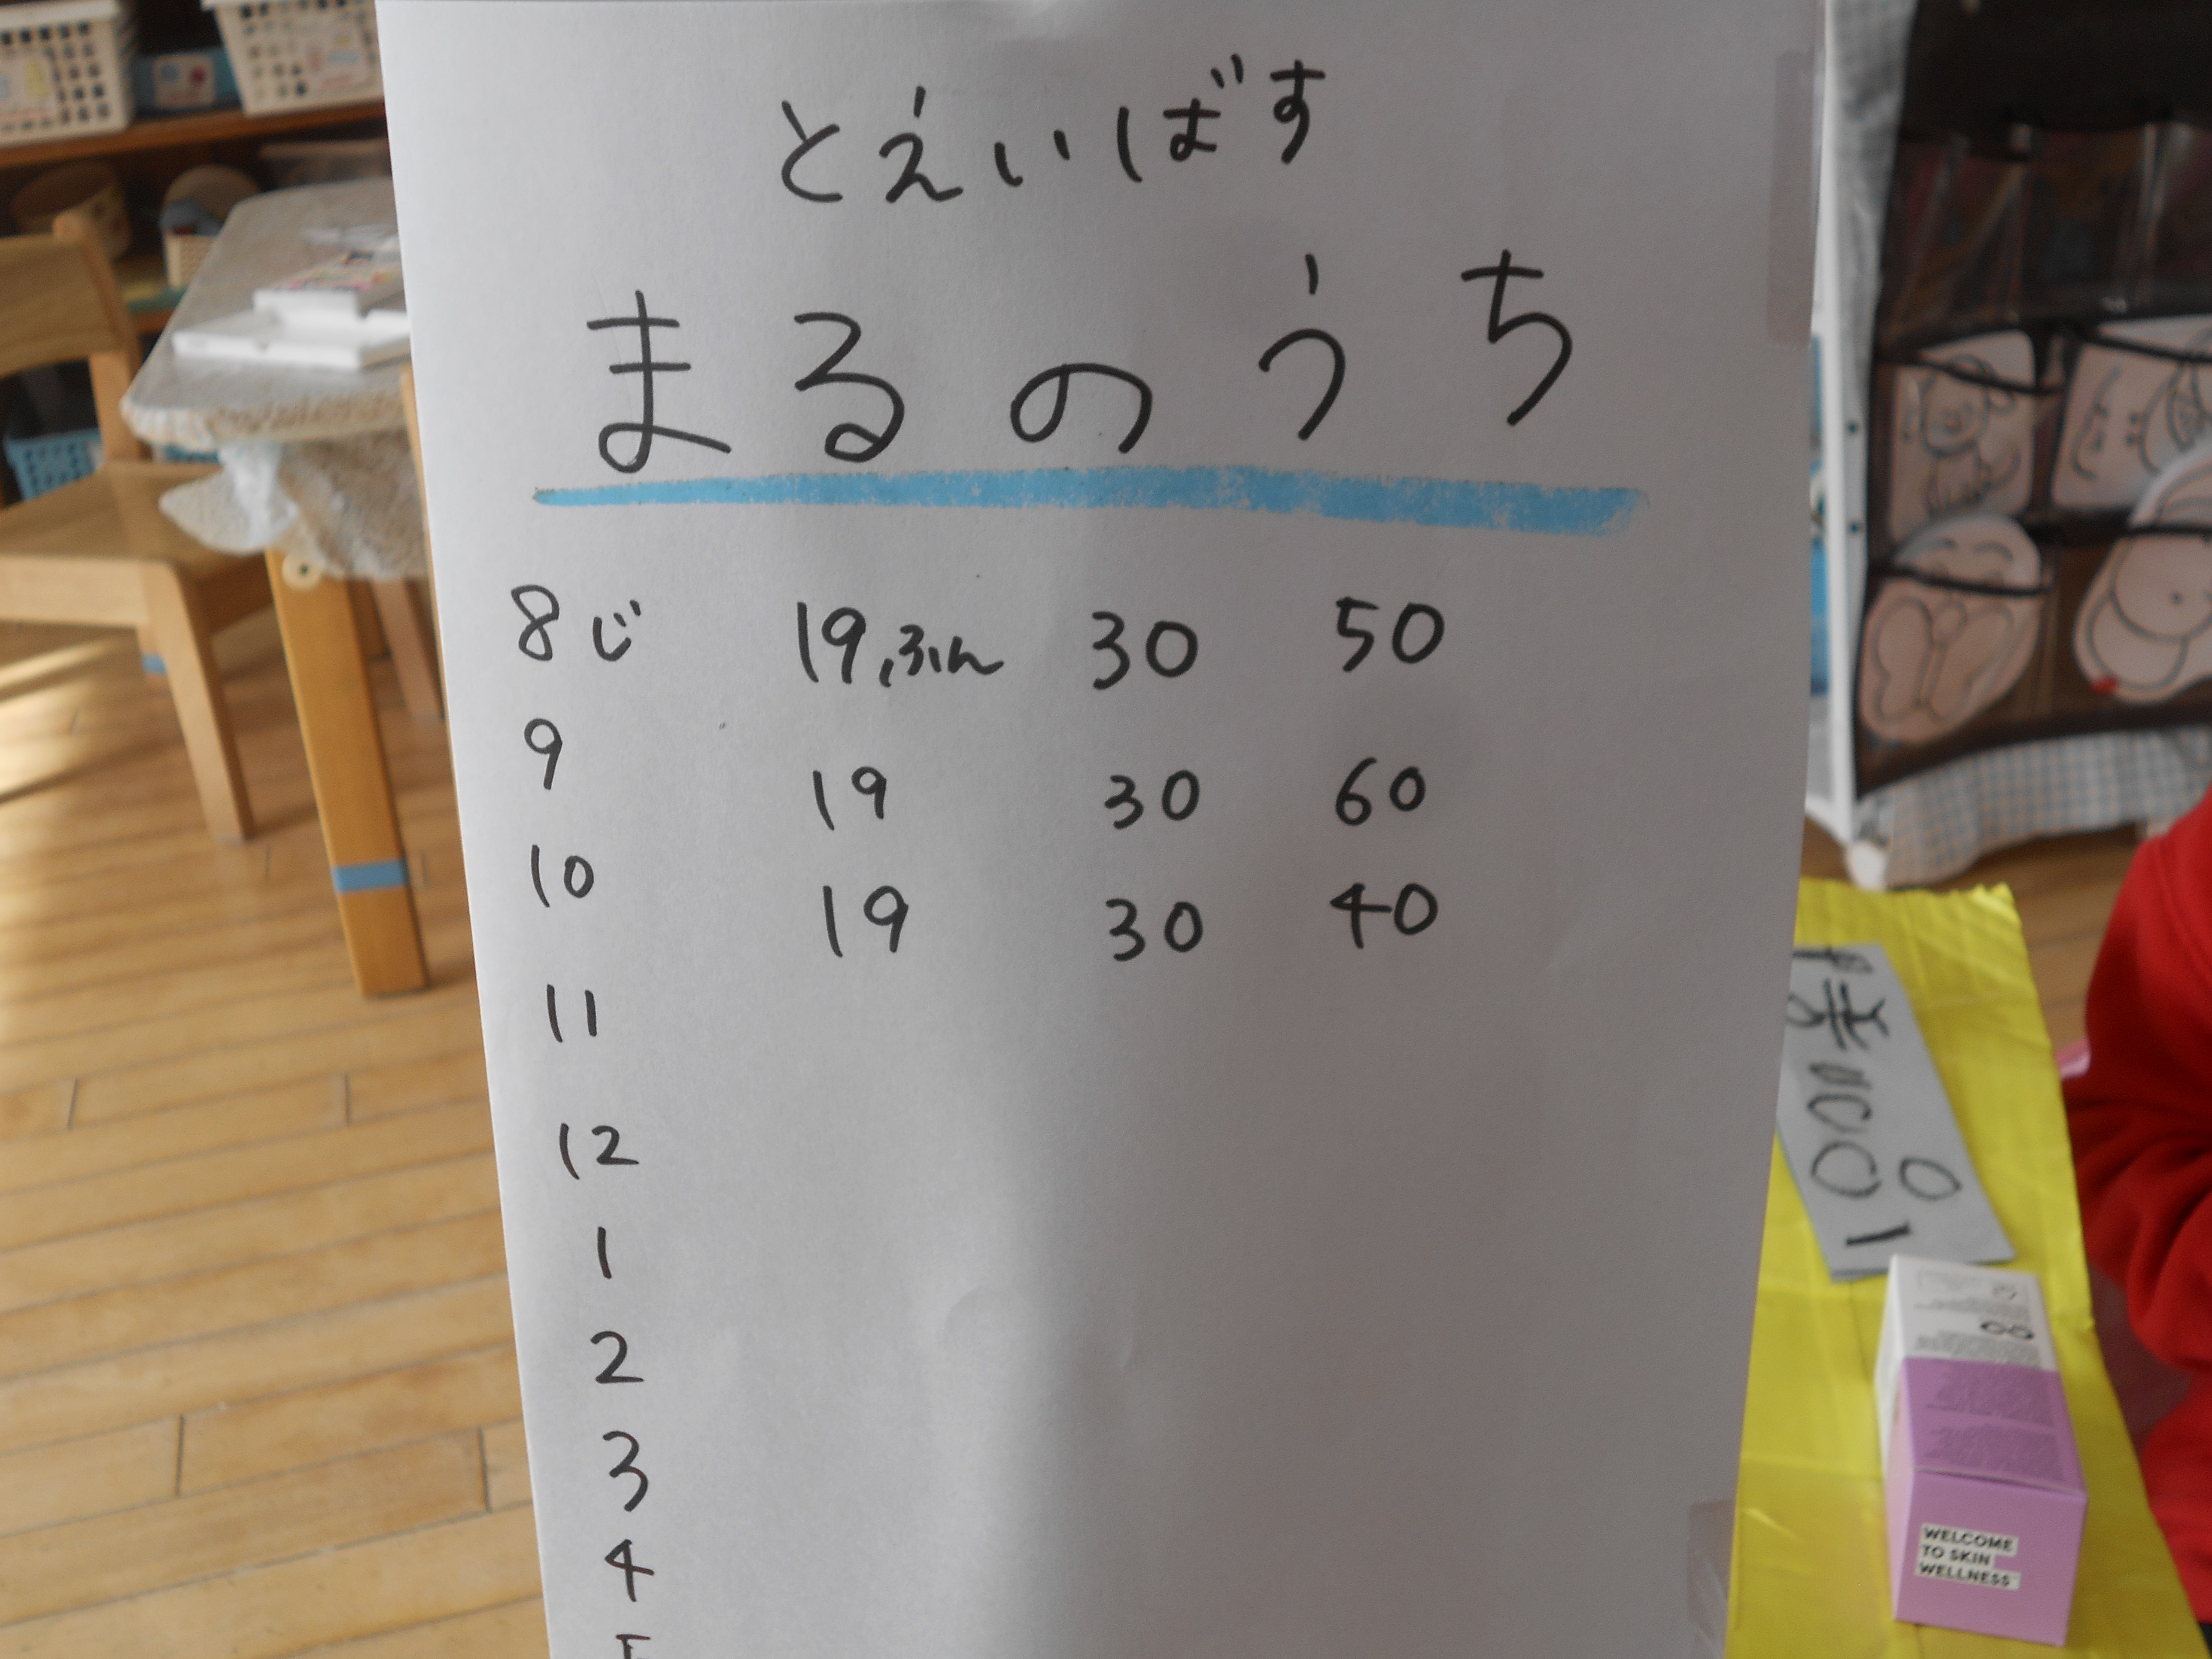 とえいばす
まるのうち
8じ 19ふん 30 50
9 19 30 60
10 19 30 40
11
12
1
2
3
4
WELCOME
TO SKIN
WELLNESS